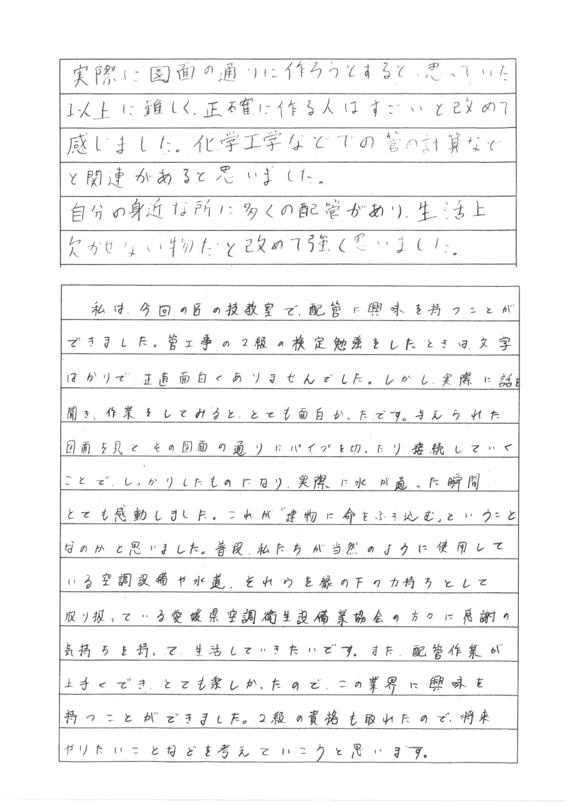 実際に図面の通りに作ろうとすると、思っていた
以上に難しく、正確に作る人はすごいと改めて
感じました。化学工学などでの管の計算など
と関連があると思いました。
自分の身近な所に多くの配管があり、生活上
欠かせない物だと改めて強く思いました。
私は、今回の匠の技教室で、配管に興味を持つことが
できました。管工事の2級の検定勉強をしたときは、文字
ばかりで、正直面白くありませんでした。しかし、実際に話を
聞き、作業をしてみると、とても面白かったです。与えられた
図面を見て、その図面の通りにパイプを切ったり接続していく
ことで、しっかりしたものになり、実際に水が通った瞬間
とても感動しました。これが「建物に命をふき込む」ということ
なのかと思いました。普段、私たちが当然のように使用して
いる空調設備や水道、それらを縁の下の力持ちとして
取り扱っている愛媛県空調衛生設備業協会の方々に感謝の
気持ちを持って、生活していきたいです。また、配管作業が
上手くでき、とても楽しかったので、この業界に興味を
持つことができました。2級の資格も取れたので、将来
やりたいことなどを考えていこうと思います。